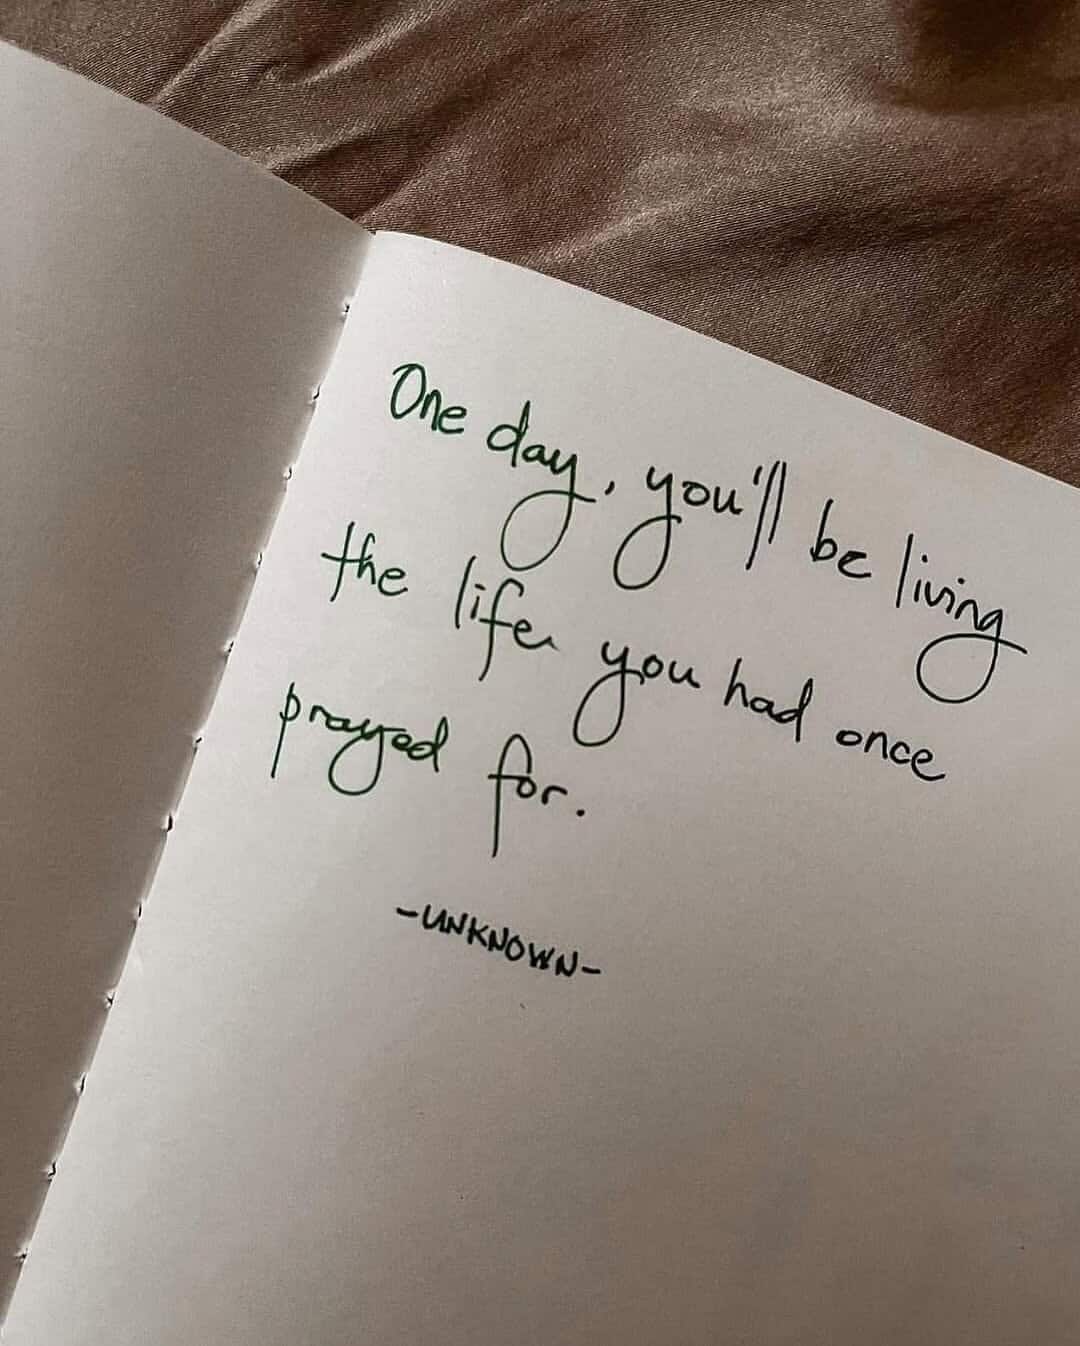 One day, you'll be living
the life you had once
prayed for.
-UNKNOWN-